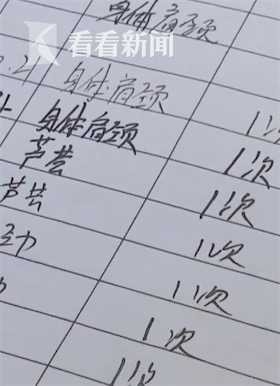 身体肩颈
看看新闻
.21 身体肩颈 1次
身体肩颈 1次
芦荟 1次
芦荟 1次
1次
1次
1次